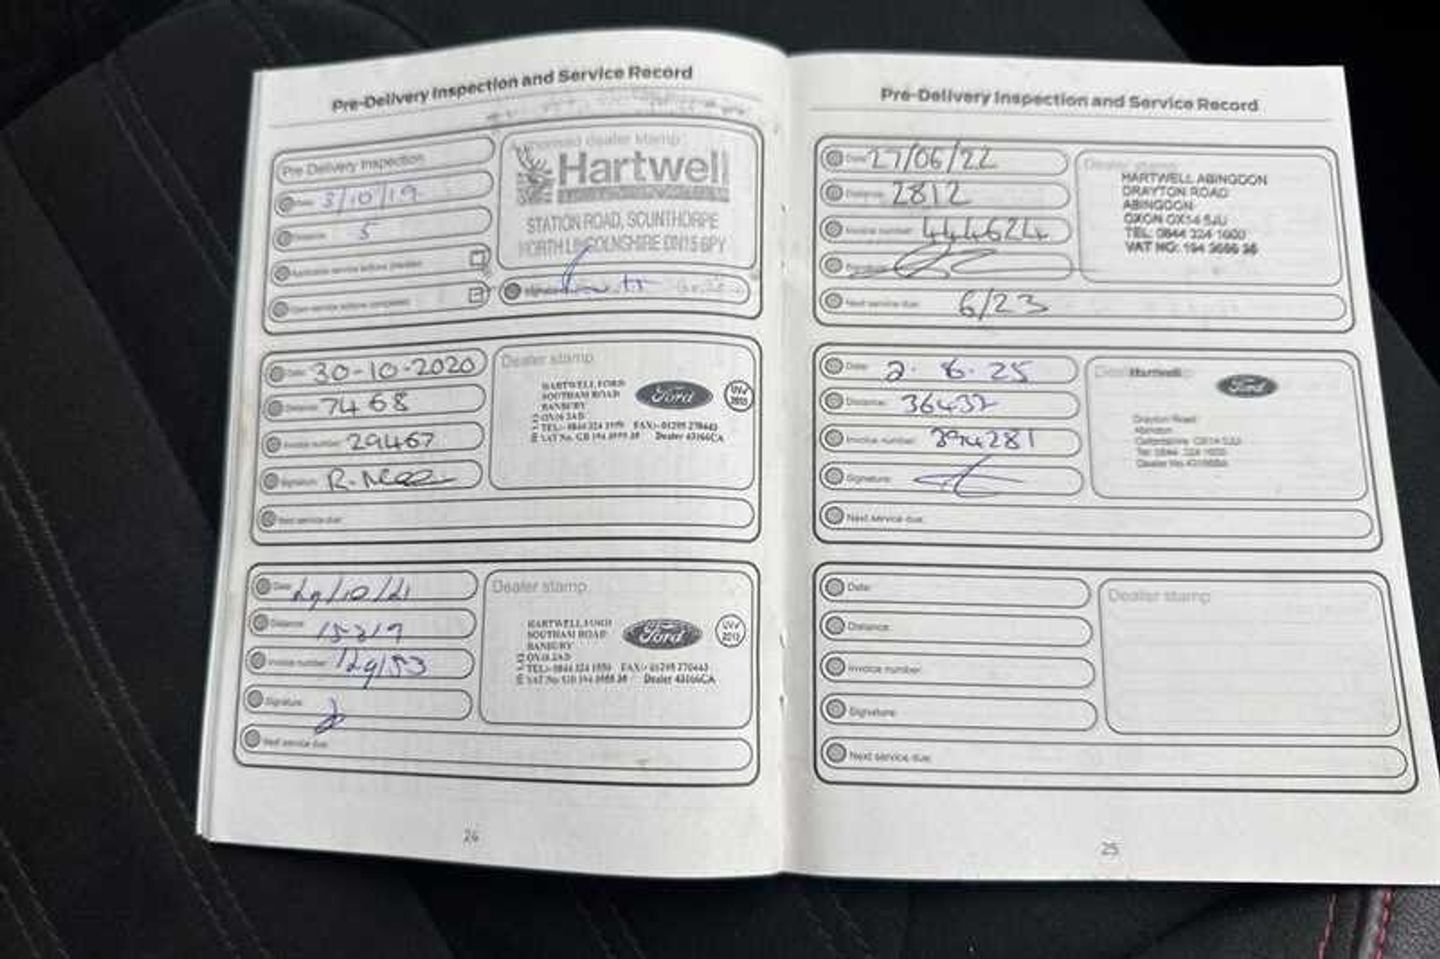 Pre-Delivery Inspection and Service Record
Pre Delivery Inspection
Date: 3/10/19
Distance: 5
Authorised dealer stamp:
Hartwell
STATION ROAD, SCUNTHORPE
NORTH LINCOLNSHIRE DN15 6PY
Date: 30-10-2020
Distance: 7468
Invoice number: 29467
Signature:
Next service due:
Dealer stamp
HARTWELL FORD
SOUTHAM ROAD
BANBURY
OX16 2AD
TEL:- 0844 324 1959 FAX:- 01295 270443
VAT No. GB 194 3955 38 Dealer 43166CA
Ford
Date: 29/10/21
Distance:
Invoice number: 129153
Signature:
Next service due:
Dealer stamp
HARTWELL FORD
SOUTHAM ROAD
BANBURY
OX16 2AD
FAX:- 01295 270443
Dealer 43166CA
Ford
24
Pre-Delivery Inspection and Service Record
Date: 27/06/22
Distance: 2812
Invoice number: 444624
Signature:
Next service due: 6/23
Dealer stamp
HARTWELL ABINGDON
DRAYTON ROAD
ABINGDON
OXON OX14 5JU
TEL: 0844 324 1600
VAT NO: 194
Date: 2.6.25
Distance: 36437
Invoice number: 394281
Signature:
Next service due:
Hartwell
Ford
Drayton Road
Abingdon
Oxfordshire OX14 5JU
Tel: 0844 324 1600
Dealer No.
Date:
Distance:
Invoice number:
Signature:
Next service due:
Dealer stamp
25